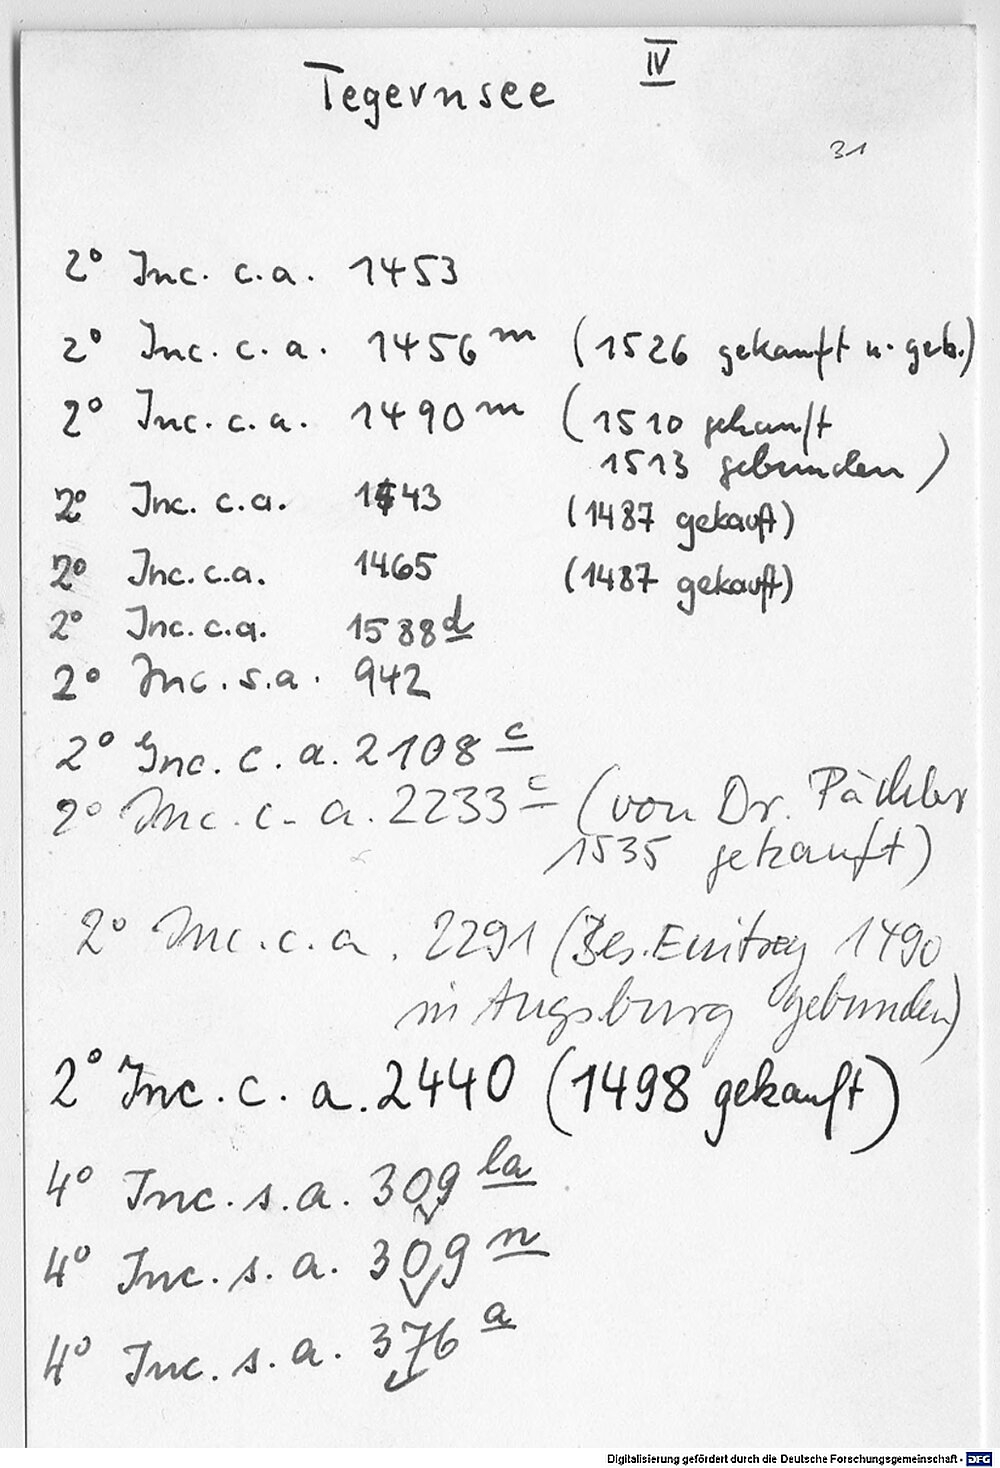 Tegernsee IV
31
2° Inc. c.a. 1453
2° Inc. c. a. 1456 m (1526 gekauft u. geb.)
2° Inc. c. a. 1490 m (1510 gekauft
1513 gebunden)
2° Inc. c.a. 1443 (1487 gekauft)
2° Inc. c.a. 1465 (1487 gekauft)
2° Inc. c.a. 1588 d
2° Inc. s.a. 942
2° Inc. c. a. 2108 c
2° Inc. c. a. 2233 c (von Dr.
1535 gekauft)
2° Inc. c. a. 2291 (Bes. Eintrag 1490
in Augsburg gebunden)
2° Inc. c. a. 2440 (1498 gekauft)
4° Inc. s. a. 309 la
4° Inc. s. a. 309 n
4° Inc. s. a. 376 a
Digitalisierung gefördert durch die Deutsche Forschungsgemeinschaft - DFG